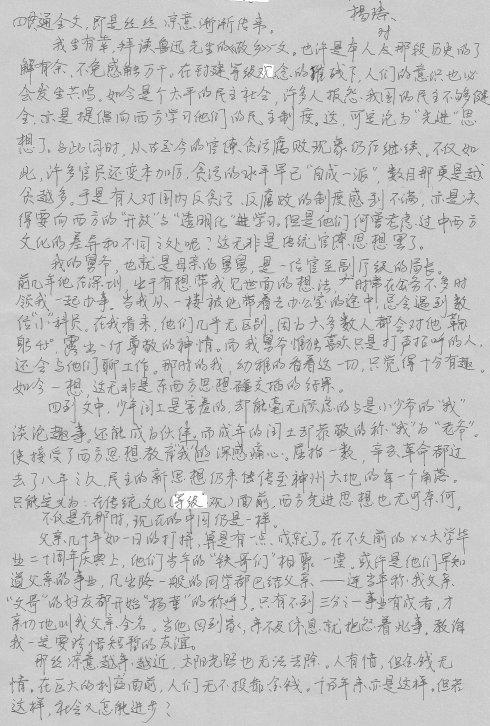 杨 涛
时
贯通全文,即是丝丝凉意渐渐传来。
我生有幸,拜读鲁迅先生的《故乡》一文。也许是本人反那段历史的了
解有余,不免感触万千。在封建等级观念的摧残下,人们的意识也必
会发生共鸣。如今是个太平的民主社会,许多人抱怨我国的民主不够健
全,亦是提倡向西方学习他们的民主制度。这,可是论为“先进”思
想了。与此同时,从古至今的官僚、贪污腐败现象仍在继续。不仅如
此,许多官员还变本加厉,贪污的水平早已“自成一派”,数目那更是越
贪越多。于是有人对国内反贪污、反腐败的制度感到不满,亦是决
得要向西方的“开放”与“透明化”进学习。但是他们何曾考虑过中西方
文化的差异和不同之处呢?这无非是传统官僚思想罢了。
我的舅爷,也就是母亲的舅舅,是一位官至副厅级的局长。
前几年他在深圳,出于有想带我见世面的想法,时常在公务不多时
领我一起办事。当我从一楼被他带着去办公室的途中,总会遇到数
位“小”科员,在我看来,他们几乎无区别。因为大多数人都会对他鞠
躬45°,露出一付尊敬的神情。而我舅爷惟独喜欢只是打声招呼的人,
还会与他们聊工作。那时的我,幼稚的看着这一切,只觉得十分有趣。
如今一想,这无非是东西方思想碰交插的结果。
回到文中,少年闰土是害羞的,却能毫无顾虑的与是小少爷的“我”
谈论趣事。还能成为伙伴。而成年的闰土却恭敬的称“我”为“老爷”。
使接受了西方思想教育“我”的深感痛心。屈指一数,辛亥革命都过
去了八年之久,民主的新思想仍未传传至神州大地的每一个角落。
只能定义为:在传统文化(等级观)面前,西方先进思想也无可奈何。
不仅是在那时,现在的中国仍是一样。
父亲几十年如一日的打拼,算是有一点成就了。在不久前的××大学毕
业二十周年庆典上,他们当年的“铁哥们”相聚一堂。或许是他们早知
道父亲的事业,凡当除一般的同学都巴结父亲——连当年称我父亲
“文哥”的好友都开始“杨董”的称呼了,只有不到三分之一事业有成者,才
亲切地叫我父亲全名。当他回到家,来不及休息,就抱怨着此事,教诲
我一定要珍惜短暂的友谊。
那丝凉意越来越近,太阳光照也无法去除。人有情,但金钱无
情。在巨大的利益面前,人们无不投靠金钱。十多年来亦是这样。但若
这样,社会又怎能进步?